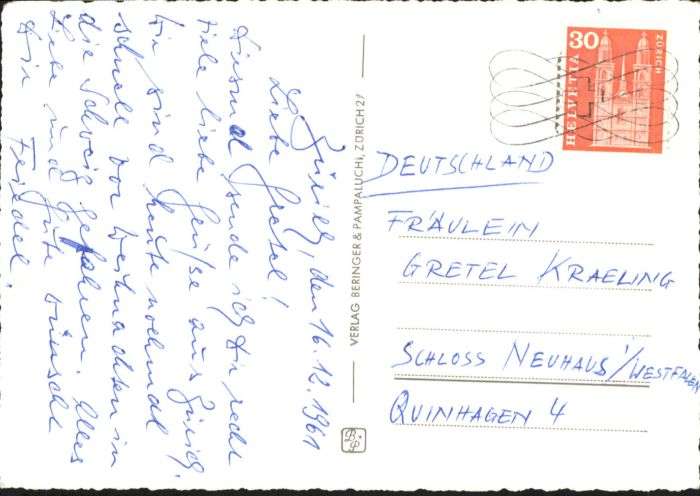 Zürich, den 16.12.1961
Liebe Gretel!
Diesmal sende ich Dir recht
viele liebe Grüße aus Zürich.
Wir sind heute nochmal
schnell vor Weihnachten in
die Schweiz gefahren. Alles
Liebe und Gute wünscht
Dir Friedel
VERLAG BERINGER & PAMPALUCHI, ZÜRICH 27
30
HELVETIA
ZÜRICH
DEUTSCHLAND
FRÄULEIN
GRETEL KRAELING
SCHLOSS NEUHAUS i/WESTFALEN
QUINHAGEN 4